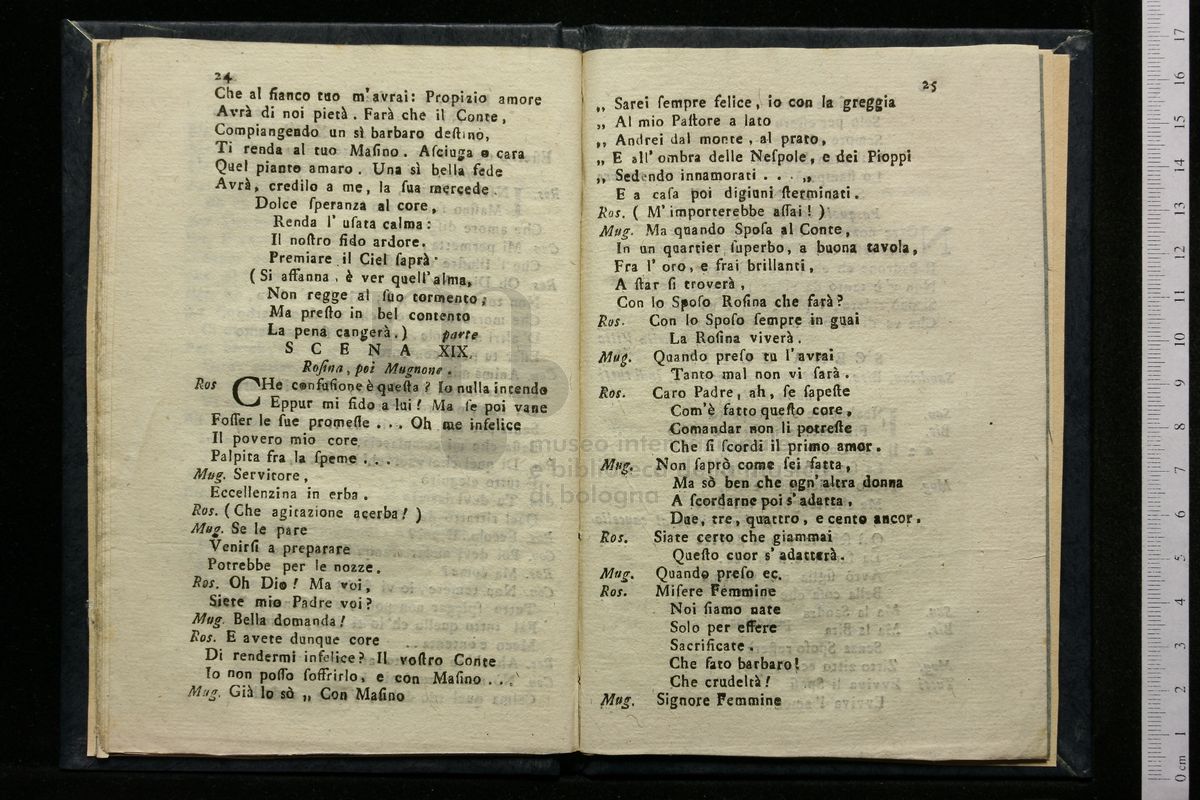 24
Che al fianco tuo m'avrai: Propizio amore
Avrà di noi pietà. Farà che il Conte,
Compiangendo un sì barbaro deſtino,
Ti renda al tuo Maſino. Aſciuga o cara
Quel pianto amaro. Una sì bella fede
Avrà, credilo a me, la ſua mercede.
Dolce ſperanza al core,
Renda l' uſata calma:
Il noſtro fido ardore.
Premiare il Ciel ſaprà
(Si affanna, è ver quell'alma,
Non regge al ſuo tormento;
Ma preſto in bel contento
La pena cangerà.) parte
SCENA XIX.
Roſina, poi Mugnone.
Ros CHe confuſione è queſta? Io nulla intendo
Eppur mi fido a lui! Ma ſe poi vane
Foſſer le ſue promeſſe... Oh me infelice
Il povero mio core
Palpita fra la ſpeme...
Mug. Servitore,
Eccellenzina in erba.
Ros. (Che agitazione acerba!)
Mug. Se le pare
Venirſi a preparare
Potrebbe per le nozze.
Ros. Oh Dio! Ma voi,
Siete mio Padre voi?
Mug. Bella domanda!
Ros. E avete dunque core
Di rendermi infelice? Il voſtro Conte
Io non poſſo ſoffrirlo, e con Maſino...
Mug. Già lo sò „ Con Maſino
25
„ Sarei ſempre felice, io con la greggia
„ Al mio Paſtore a lato
„ Andrei dal monte, al prato,
„ E all' ombra delle Neſpole, e dei Pioppi
„ Sedendo innamorati... „
E a caſa poi digiuni ſterminati.
Ros. (M' importerebbe aſſai!)
Mug. Ma quando Spoſa al Conte,
In un quartier ſuperbo, a buona tavola,
Fra l' oro, e frai brillanti,
A ſtar ſi troverà,
Con lo Spoſo Roſina che farà?
Ros. Con lo Spoſo ſempre in guai
La Roſina viverà.
Mug. Quando preſo tu l'avrai
Tanto mal non vi ſarà.
Ros. Caro Padre, ah, ſe ſapeſte
Com'è fatto queſto core,
Comandar non li potreſte
Che ſi ſcordi il primo amor.
Mug. Non ſaprò come ſei fatta,
Ma sò ben che ogn'altra donna
A ſcordarne poi s'adatta,
Due, tre, quattro, e cento ancor.
Ros. Siate certo che giammai
Queſto cuor s'adatterà.
Mug. Quando preſo ec.
Ros. Miſere Femmine
Noi ſiamo nate
Solo per eſſere
Sacrificate.
Che fato barbaro!
Che crudeltà!
Mug. Signore Femmine
museo inter
e biblioteca della musica
di bologna
0 cm 1 2 3 4 5 6 7 8 9 10 11 12 13 14 15 16 17